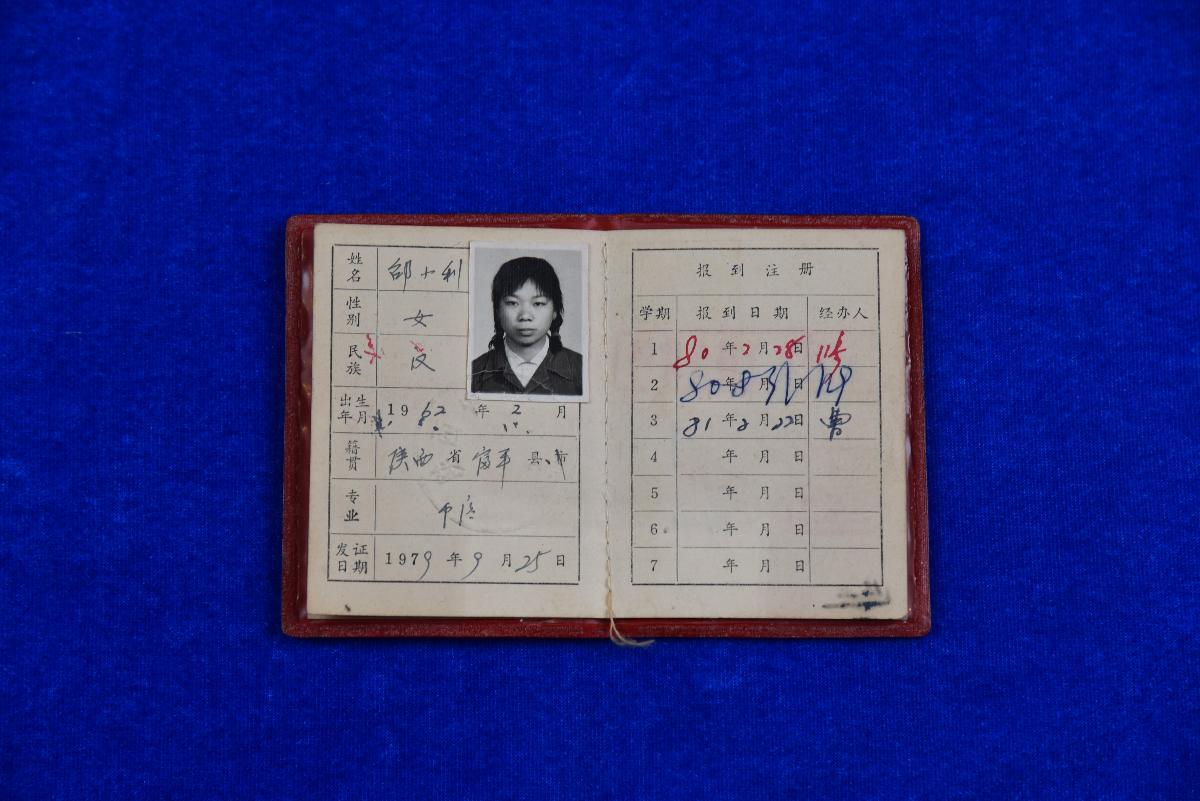 姓名 邵小利
性别 女
民族 汉
出生年月 1962年2月
籍贯 陕西省富平县、市
专业
发证日期 1979年9月25日
报到注册
学期 报到日期 经办人
1 80年2月28日
2 80年8月31日
3 81年2月22日 曹
4 年 月 日
5 年 月 日
6 年 月 日
7 年 月 日